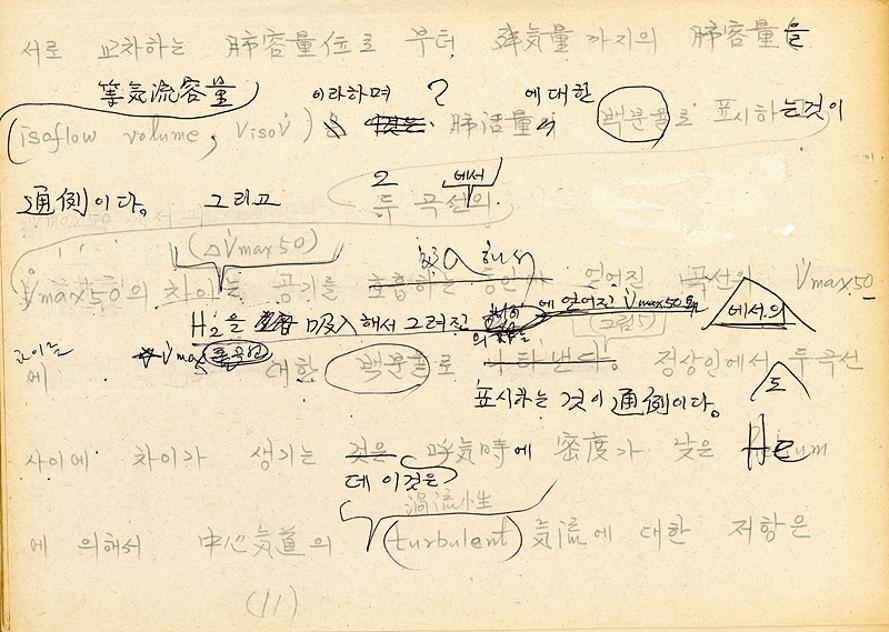 서로 교차하는 肺容量位로 부터 残気量까지의 肺容量을
等気流容量 이라하며 ? 에 대한
(isoflow volume, VisoV̇) 肺活量의 백분율로 표시하는것이
通例이다. 그리고 두 곡선의 에서
(△V̇max50)
V̇max50의 차이는 공기를 호흡하는 동안에 얻어진 곡선의 V̇max50
을 吸入해서 그려진 에 얻어진 V̇max50 에서의
(그림 5)
차이를 V̇max
에 대한 백분율로 나타낸다. 정상인에서 두곡선
표시하는 것이 通例이다. 도
사이에 차이가 생기는 것은 呼気時에 密度가 낮은 He
데 이것은
渦流性
에 의해서 中心気道의 (turbulent) 気流에 대한 저항은
(11)